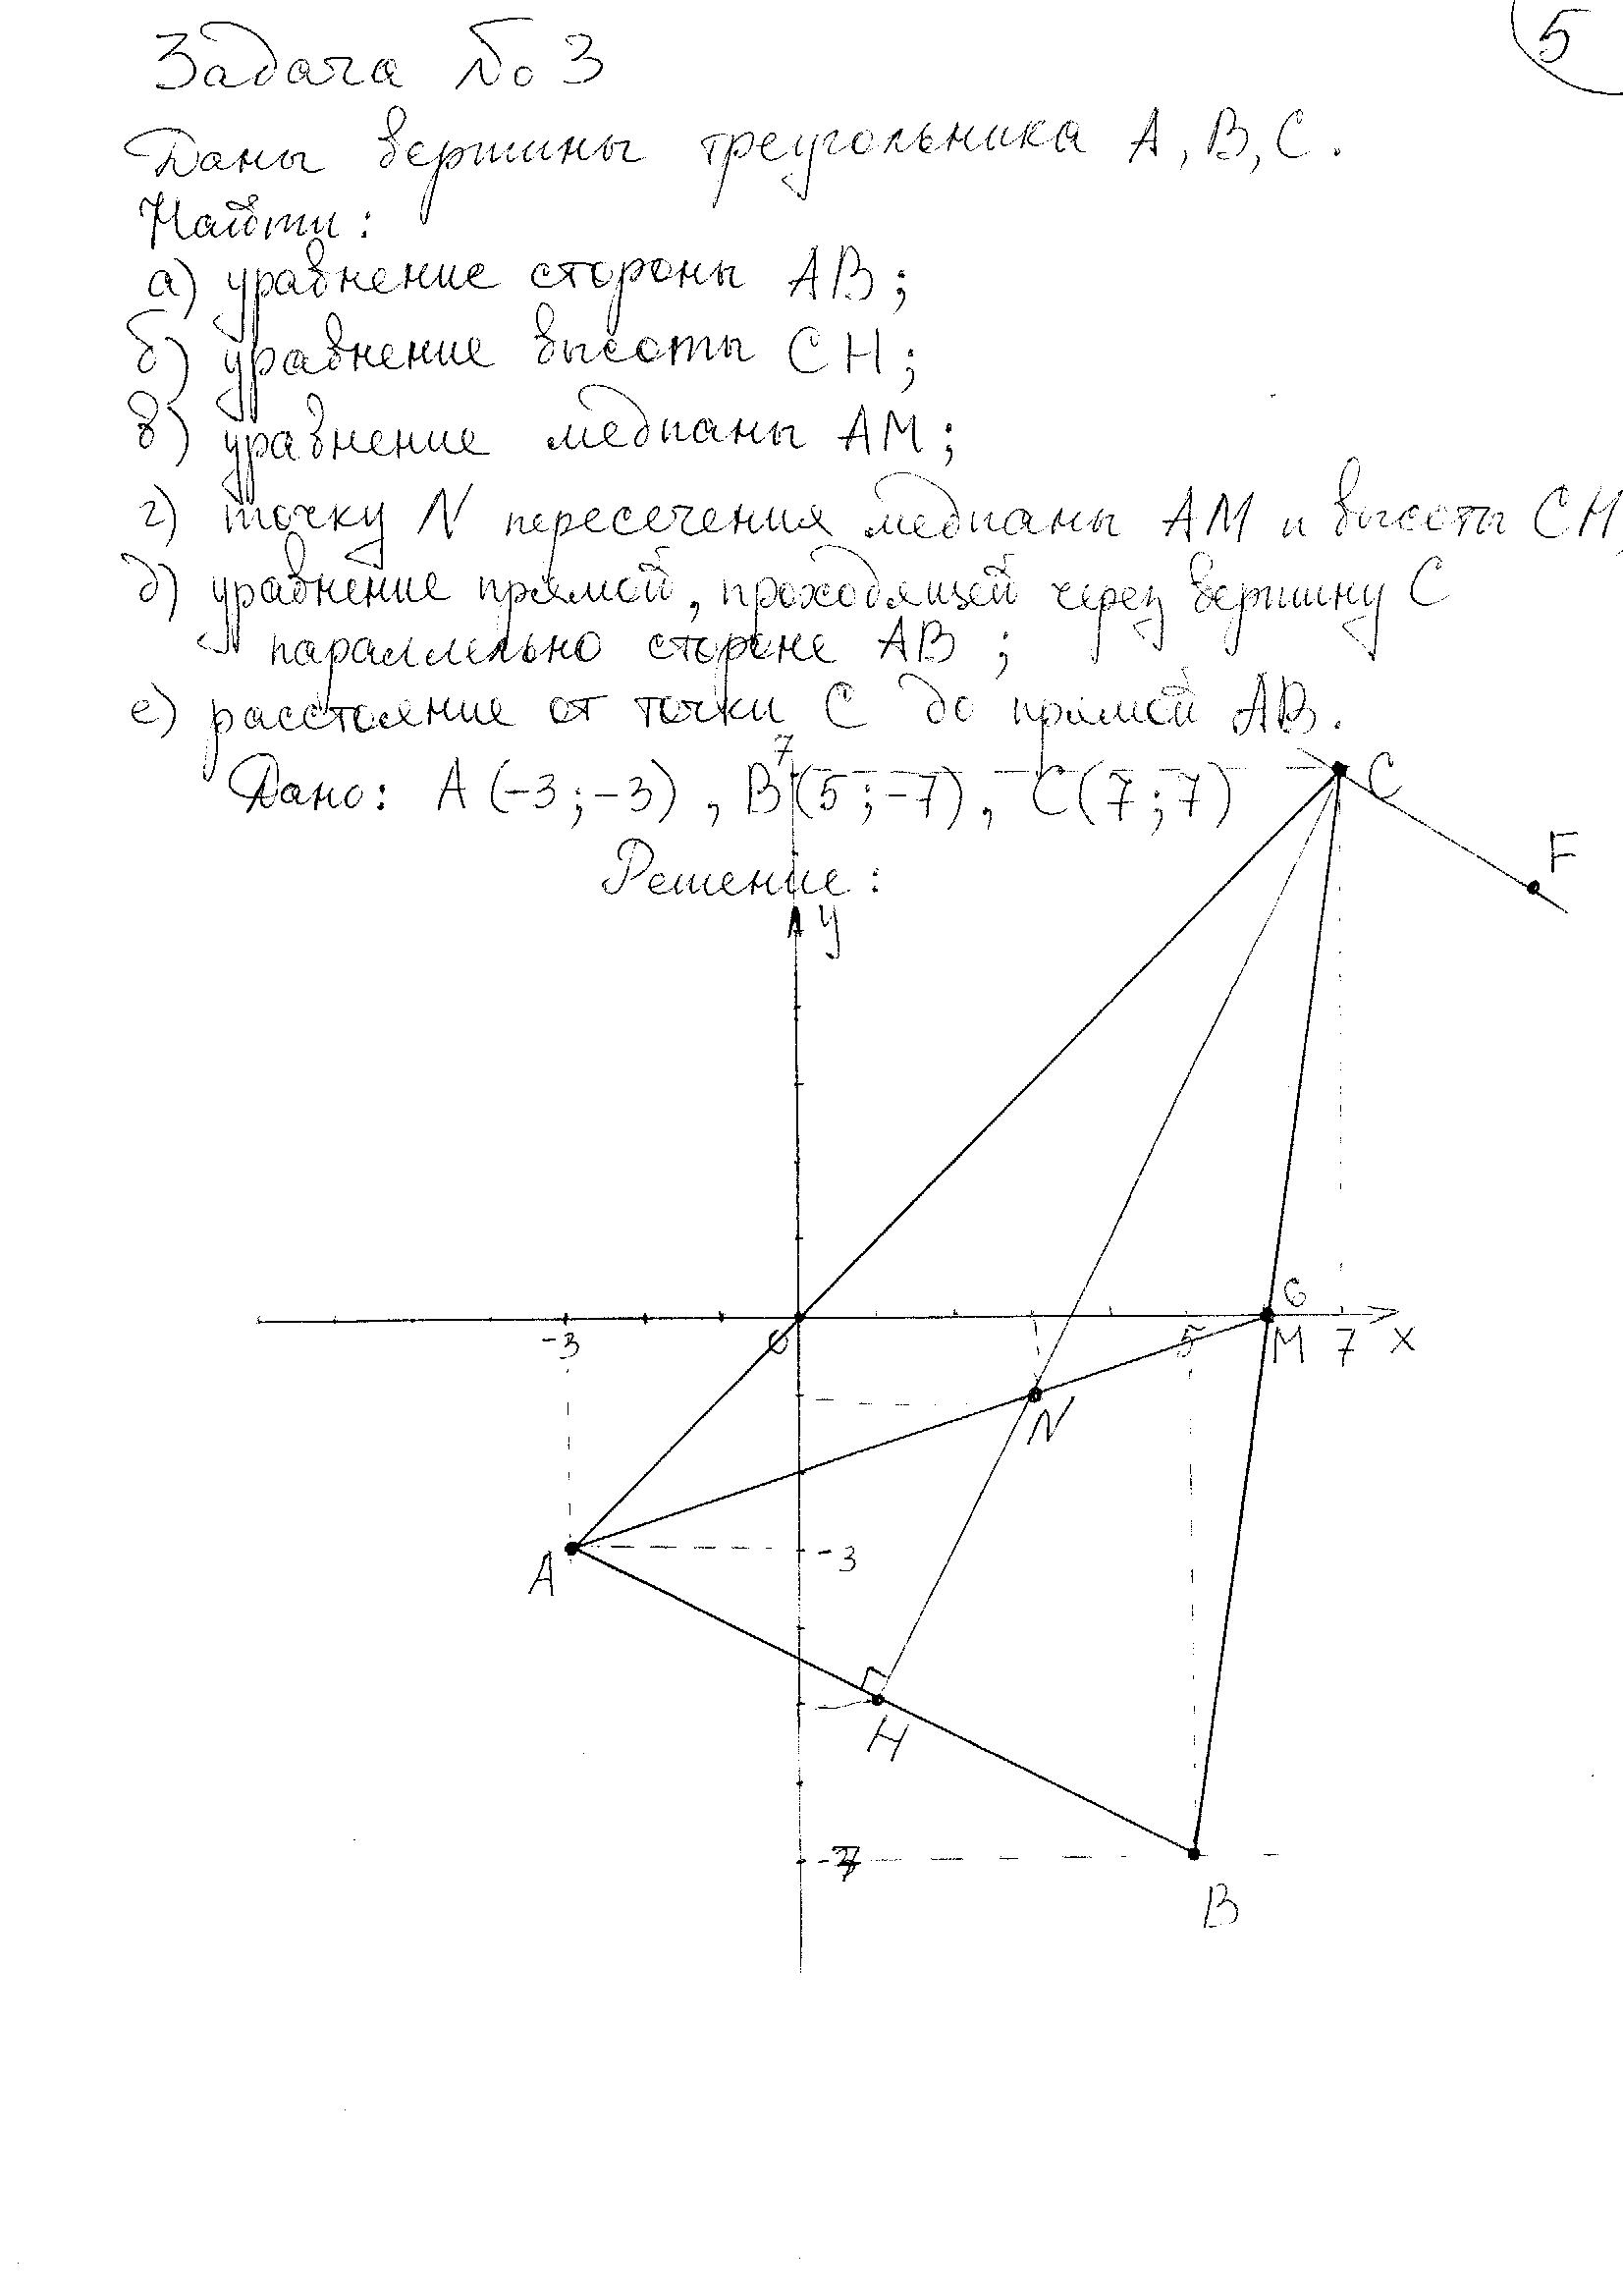 5
Задача № 3
Даны вершины треугольника А, В, С.
Найти:
а) уравнение стороны АВ;
б) уравнение высоты СН;
в) уравнение медианы АМ;
г) точку N пересечения медианы АМ и высоты СН;
д) уравнение прямой, проходящей через вершину С
параллельно стороне АВ ;
е) расстояние от точки С до прямой АВ.
7
Дано: А (-3 ; -3) , В (5 ; -7) , С (7 ; 7)
C
F
Решение :
y
6
-3
0
5
M
7
x
N
A
-3
H
-7
B